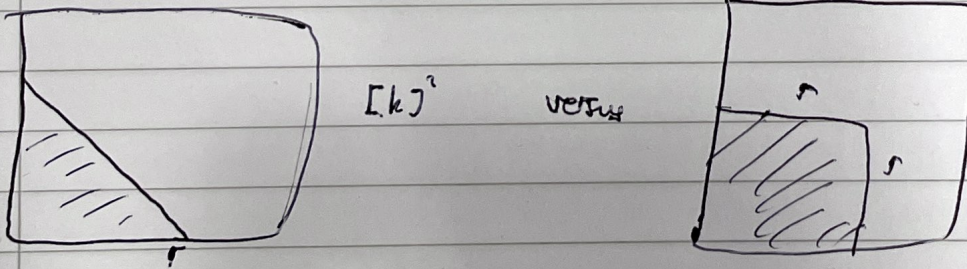 r
[k]² versus
r
r